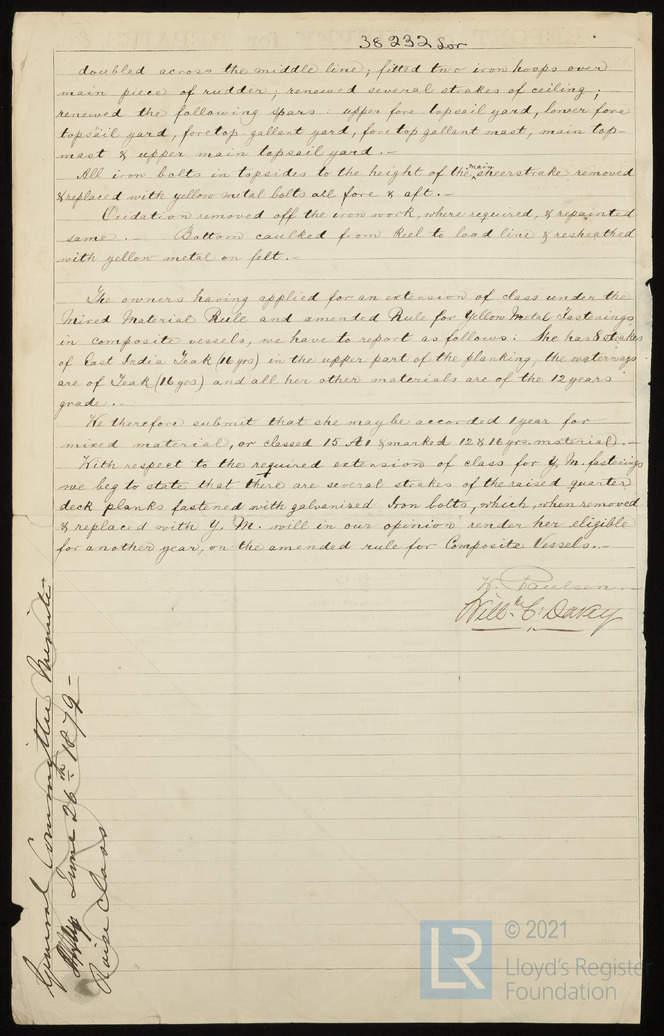 38232 Lor
doubled across the middle line; fitted two iron hoops over
main piece of rudder; renewed several strakes of ceiling;
renewed the following spars: upper fore topsail yard, lower fore
topsail yard, foretop-gallant yard, fore top gallant mast, main top-
mast & upper main topsail yard. —
All iron bolts in topsides to the height of the main sheerstrake removed
& replaced with yellow metal bolts all fore & aft. —
Oxidation removed off the iron work, where required, & repainted
same. — Bottom caulked from Keel to load line & resheathed
with yellow metal on felt. —
The owners having applied for an extension of class under the
Mixed Material Rule and amended Rule for Yellow Metal Fastenings
in composite vessels, we have to report as follows: She has 8 strakes
of East India Teak (16 yrs) in the upper part of the planking, the waterways
are of Teak (16 yrs) and all her other materials are of the 12 years
grade. —
We therefore submit that she may be accorded 1 year for
mixed material, or classed 15 A1 & marked 12 & 16 yrs. material). —
With respect to the required extension of class for Y. M. fastenings
we beg to state that there are several strakes of the raised quarter
deck planks fastened with galvanised Iron bolts, which, when removed
& replaced with Y. M. will in our opinion render her eligible
for another year, on the amended rule for Composite Vessels. —
W. Paulsen. —
Will.m C. Davey
General Committee Minute
June 26th 1879 —
Raise Class
© 2021
LR
Lloyd's Register
Foundation